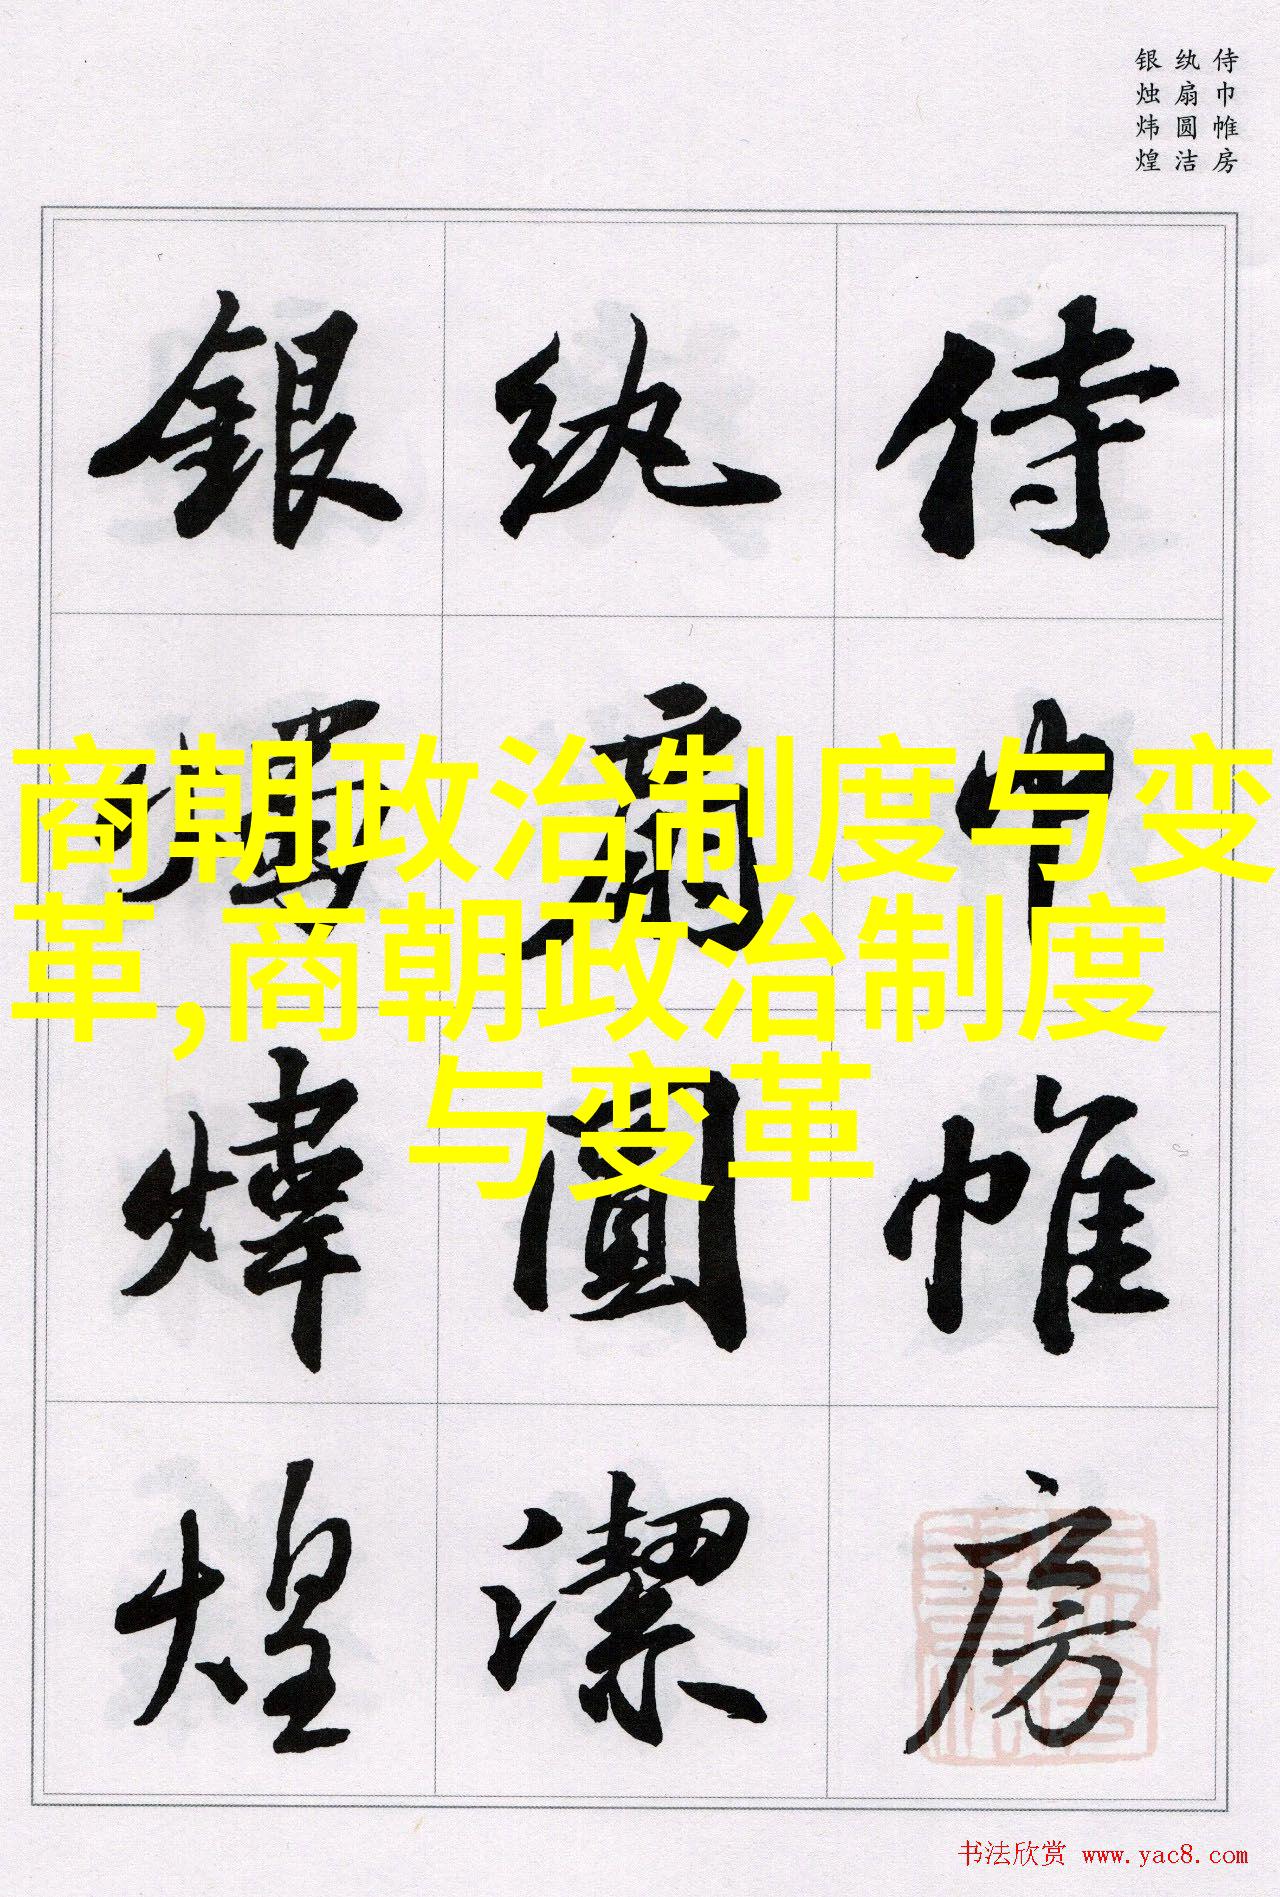 侍巾帷房
纨扇圆洁
银烛炜煌
侍巾帷房
纨扇圓潔
銀燭煒煌
商朝政治制度与变
革,商朝政治制度
与变革
书法欣赏 www.yac8.com